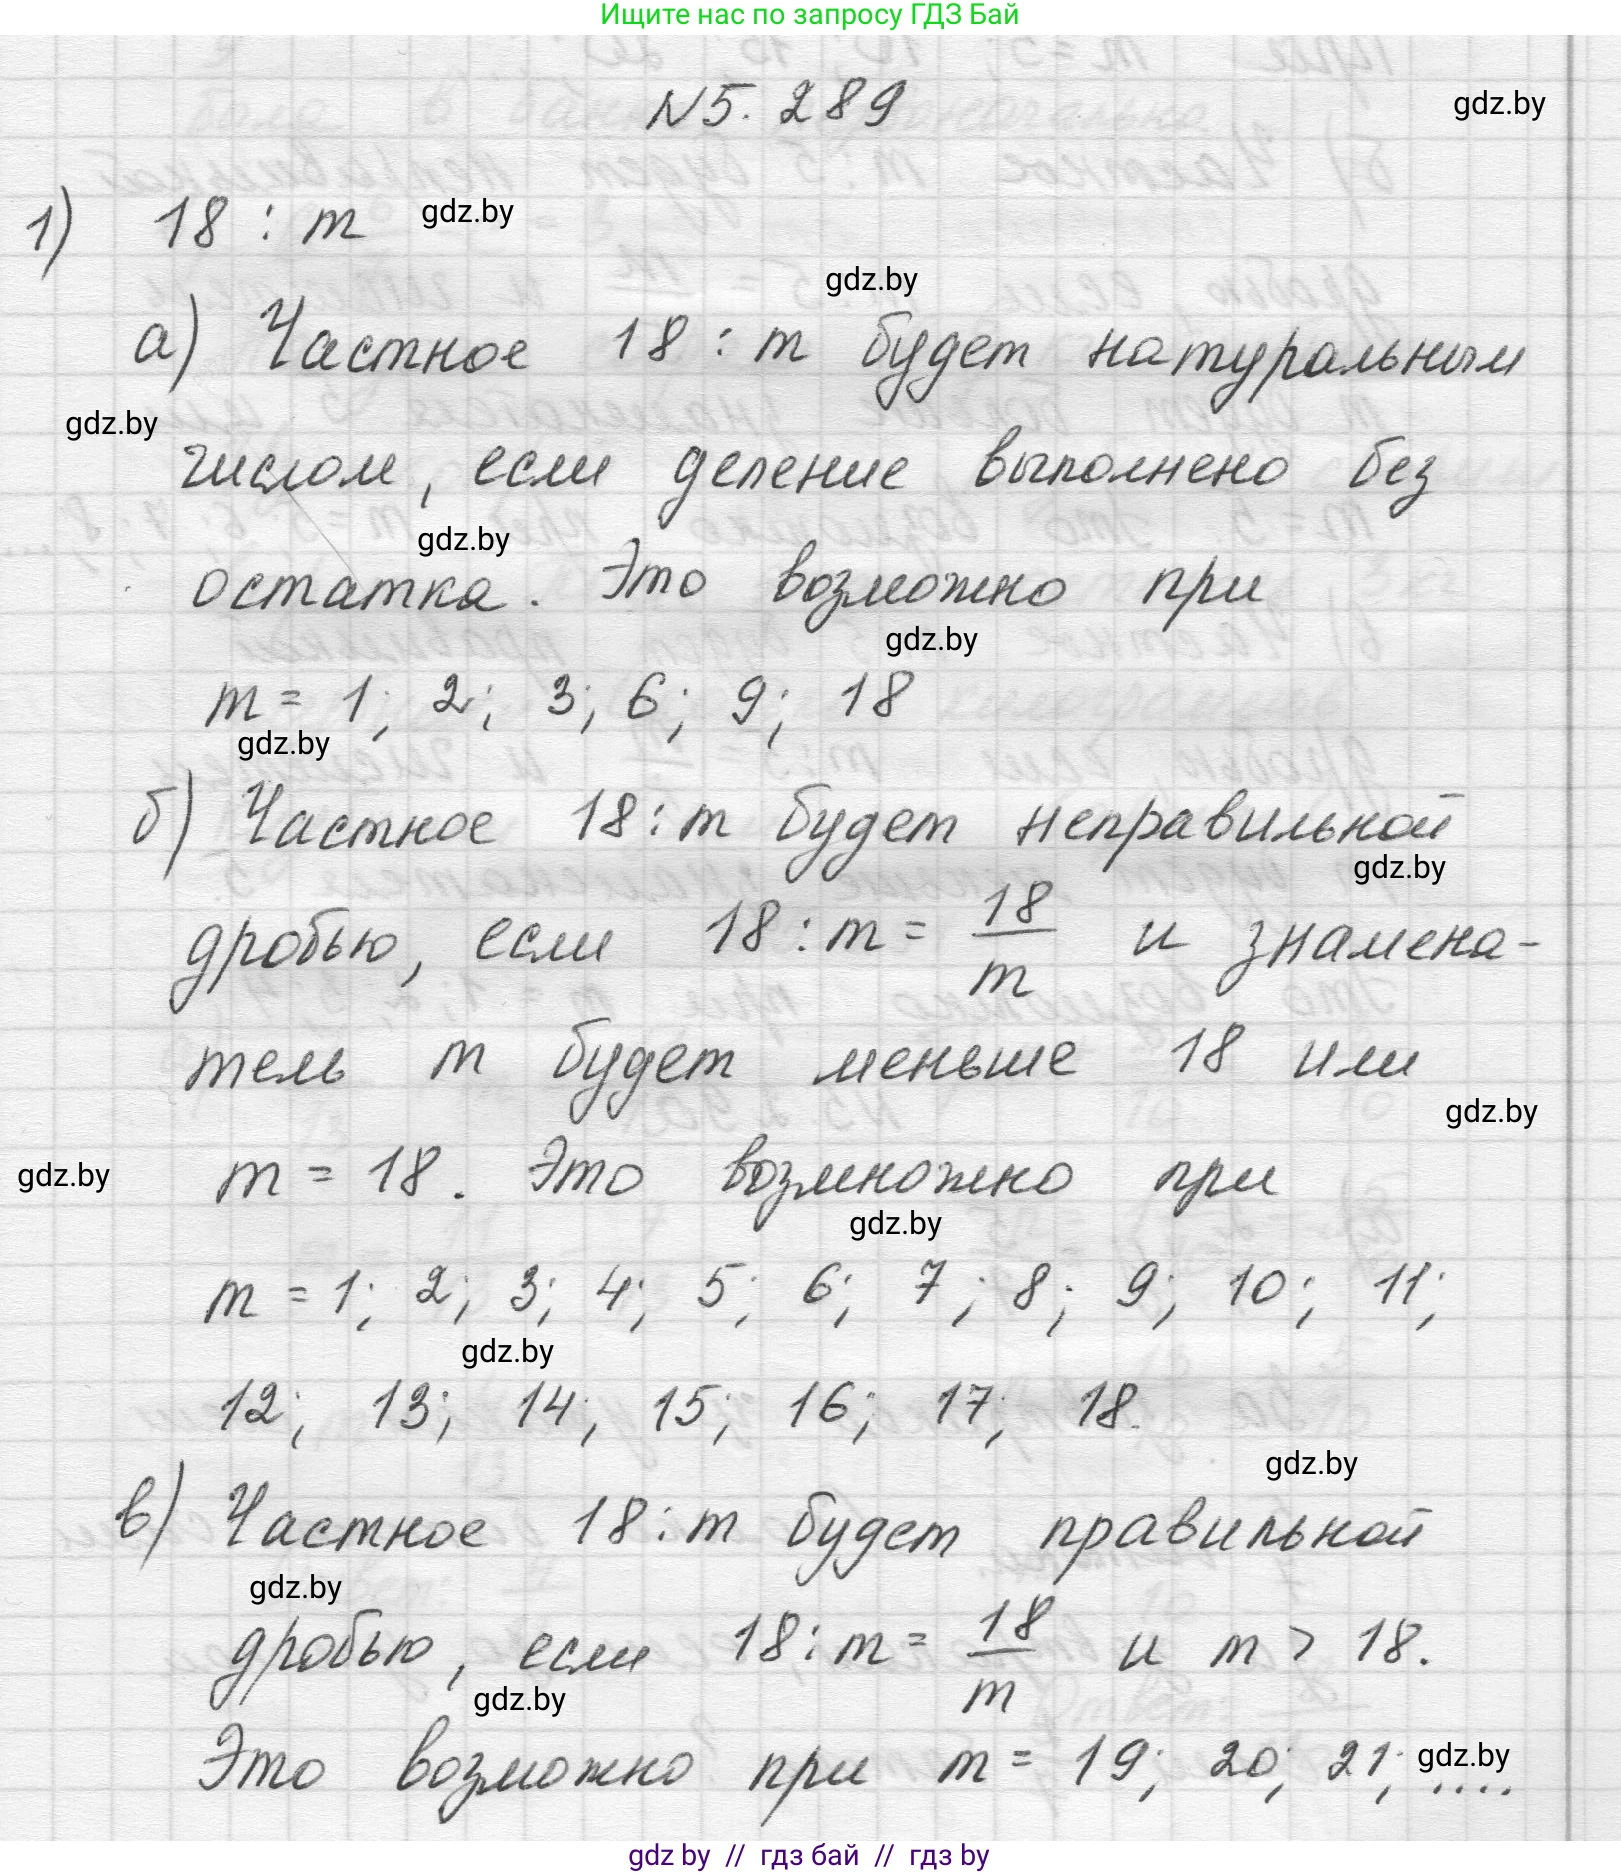 Ищите нас по запросу ГДЗ Бай
N5.289
gdz.by
1) 18 : m
gdz.by
gdz.by
а) Частное 18 : m будет натуральным
gdz.by
числом, если деление выполнено без
gdz.by
остатка. Это возможно при
gdz.by
m = 1; 2; 3; 6; 9; 18
gdz.by
б) Частное 18:m будет неправильной
gdz.by
дробью, если 18:m = 18/m и знамена-
тель m будет меньше 18 или
gdz.by
m = 18. Это возмножно при
gdz.by
gdz.by
m = 1; 2; 3; 4; 5; 6; 7; 8; 9; 10; 11;
gdz.by
12; 13; 14; 15; 16; 17; 18.
gdz.by
в) Частное 18:m будет правильной
gdz.by
дробью, если 18:m = 18/m и m > 18.
gdz.by
Это возможно при m = 19; 20; 21; ....
gdz.by
gdz by // гдз бай // гдз by